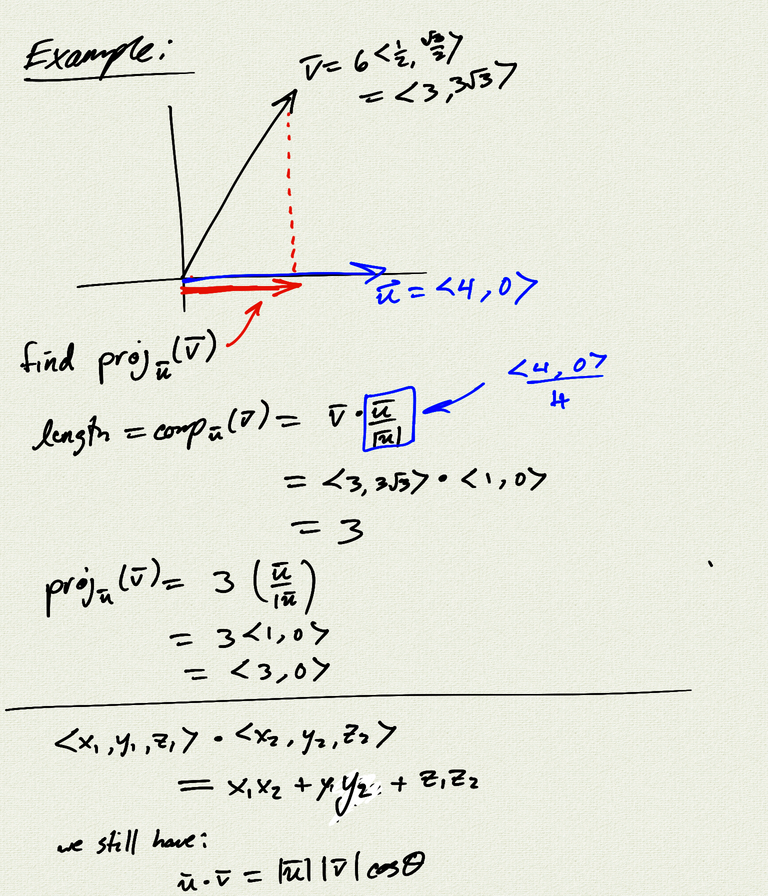 Example:
v̅ = 6<1/2, √3/2>
= <3, 3√3>
u⃗ = <4, 0>
find proj_u̅(v̅)
<4, 0>/4
length = comp_u̅(v̅) = v̅ · u̅/|u̅|
= <3, 3√3> · <1, 0>
= 3
proj_u̅(v̅) = 3 (u̅/|u̅|)
= 3<1, 0>
= <3, 0>
<x₁, y₁, z₁> · <x₂, y₂, z₂>
= x₁x₂ + y₁y₂ + z₁z₂
we still have:
u̅ · v̅ = |u̅| |v̅| cosθ